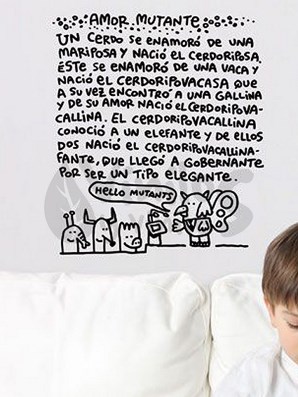 AMOR MUTANTE
UN CERDO SE ENAMORÓ DE UNA
MARIPOSA Y NACIÓ EL CERDORIPOSA.
ÉSTE SE ENAMORÓ DE UNA VACA Y
NACIÓ EL CERDORIPOVACASA QUE
A SU VEZ ENCONTRÓ A UNA GALLINA
Y DE SU AMOR NACIÓ EL CERDORIPOVA-
CALLINA. EL CERDORIPOVACALLINA
CONOCIÓ A UN ELEFANTE Y DE ELLOS
DOS NACIÓ EL CERDORIPOVACALLINA-
FANTE, QUE LLEGÓ A GOBERNANTE
POR SER UN TIPO ELEGANTE.
HELLO MUTANTS